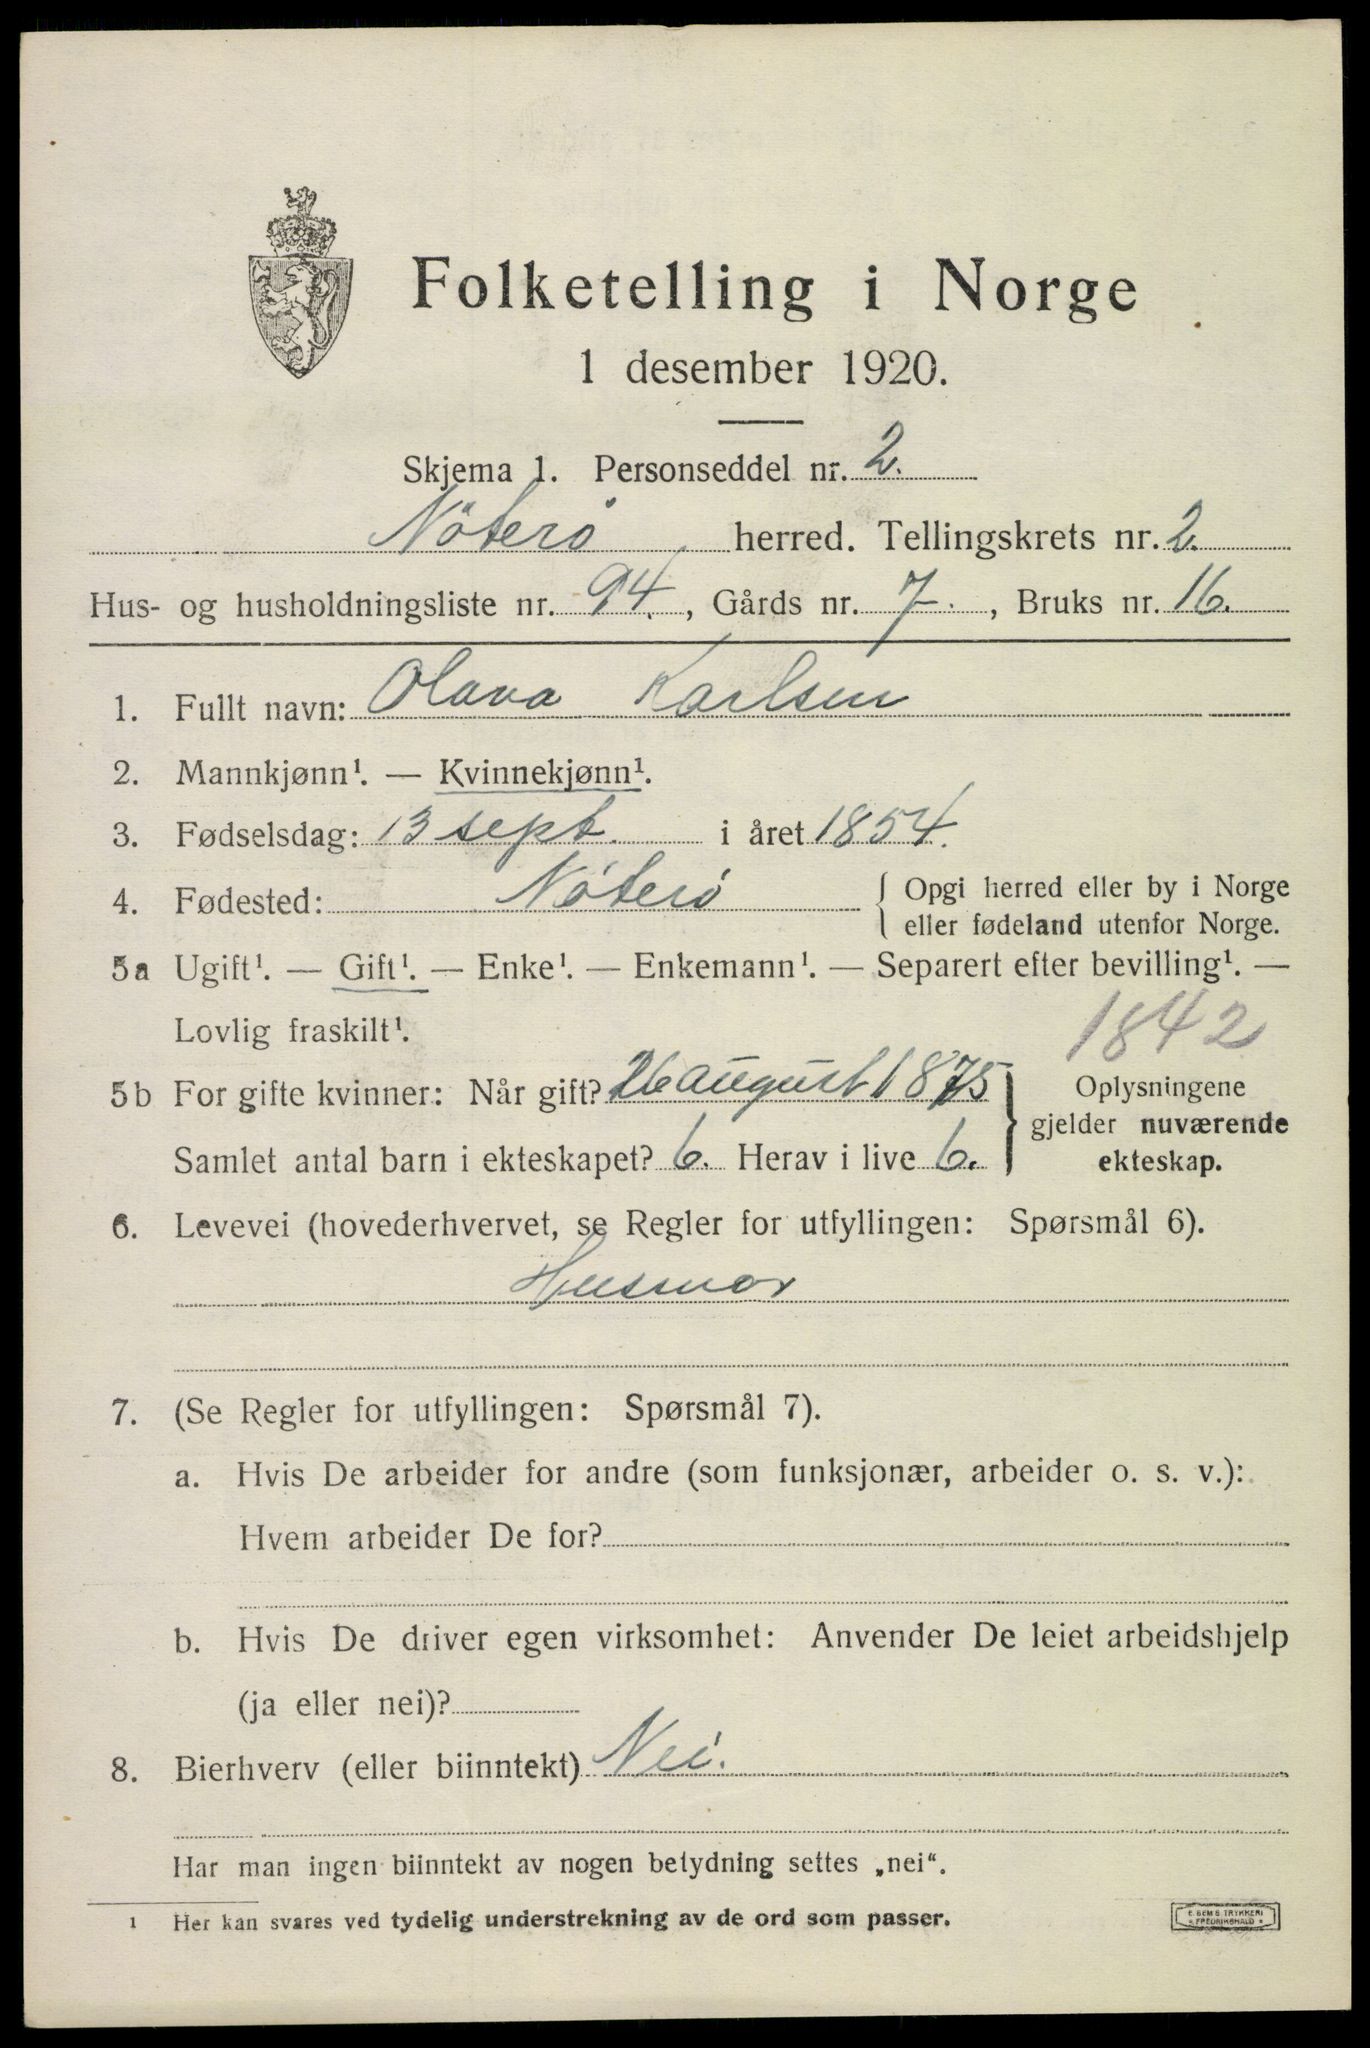 Folketelling i Norge
1 desember 1920.
Skjema 1. Personseddel nr. 2.
Nöterö herred. Tellingskrets nr. 2.
Hus- og husholdningsliste nr. 94., Gårds nr. 7., Bruks nr. 16.
1. Fullt navn: Olava Karlsen
2. Mannkjønn¹. — Kvinnekjønn¹.
3. Fødselsdag: 13 sept. i året 1854.
4. Fødested: Nöterö { Opgi herred eller by i Norge
eller fødeland utenfor Norge.
5a Ugift¹. — Gift¹. — Enke¹. — Enkemann¹. — Separert efter bevilling¹. —
Lovlig fraskilt¹.
1842
5b For gifte kvinner: Når gift? 26 august 1875 } Oplysningene
gjelder nuværende
Samlet antal barn i ekteskapet? 6. Herav i live 6. ekteskap.
6. Levevei (hovederhvervet, se Regler for utfyllingen: Spørsmål 6).
Husmor
7. (Se Regler for utfyllingen: Spørsmål 7).
a. Hvis De arbeider for andre (som funksjonær, arbeider o. s. v.):
Hvem arbeider De for?
b. Hvis De driver egen virksomhet: Anvender De leiet arbeidshjelp
(ja eller nei)?
8. Bierhverv (eller biinntekt) Nei.
Har man ingen biinntekt av nogen betydning settes „nei“.
1 Her kan svares ved tydelig understrekning av de ord som passer.
E. SEM S. TRYKKERI
* FREDRIKSHALD *